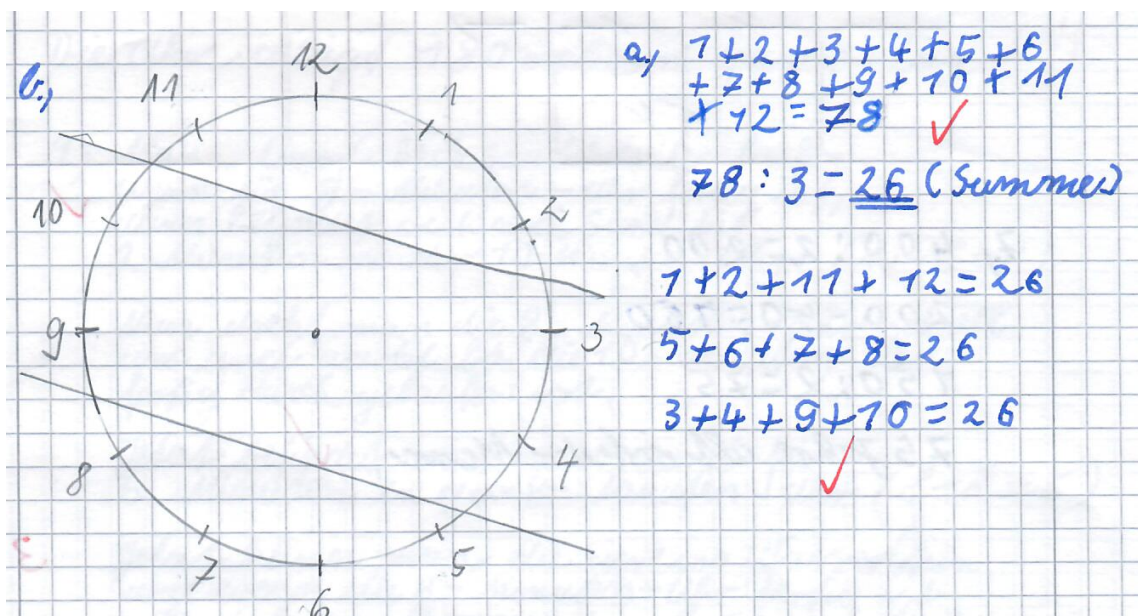 b.,
12
11
1
10
2
9
3
8
4
7
5
6
a., 1+2+3+4+5+6
+7+8+9+10+11
+12=78
78:3=26 (Summe)
1+2+11+12=26
5+6+7+8=26
3+4+9+10=26